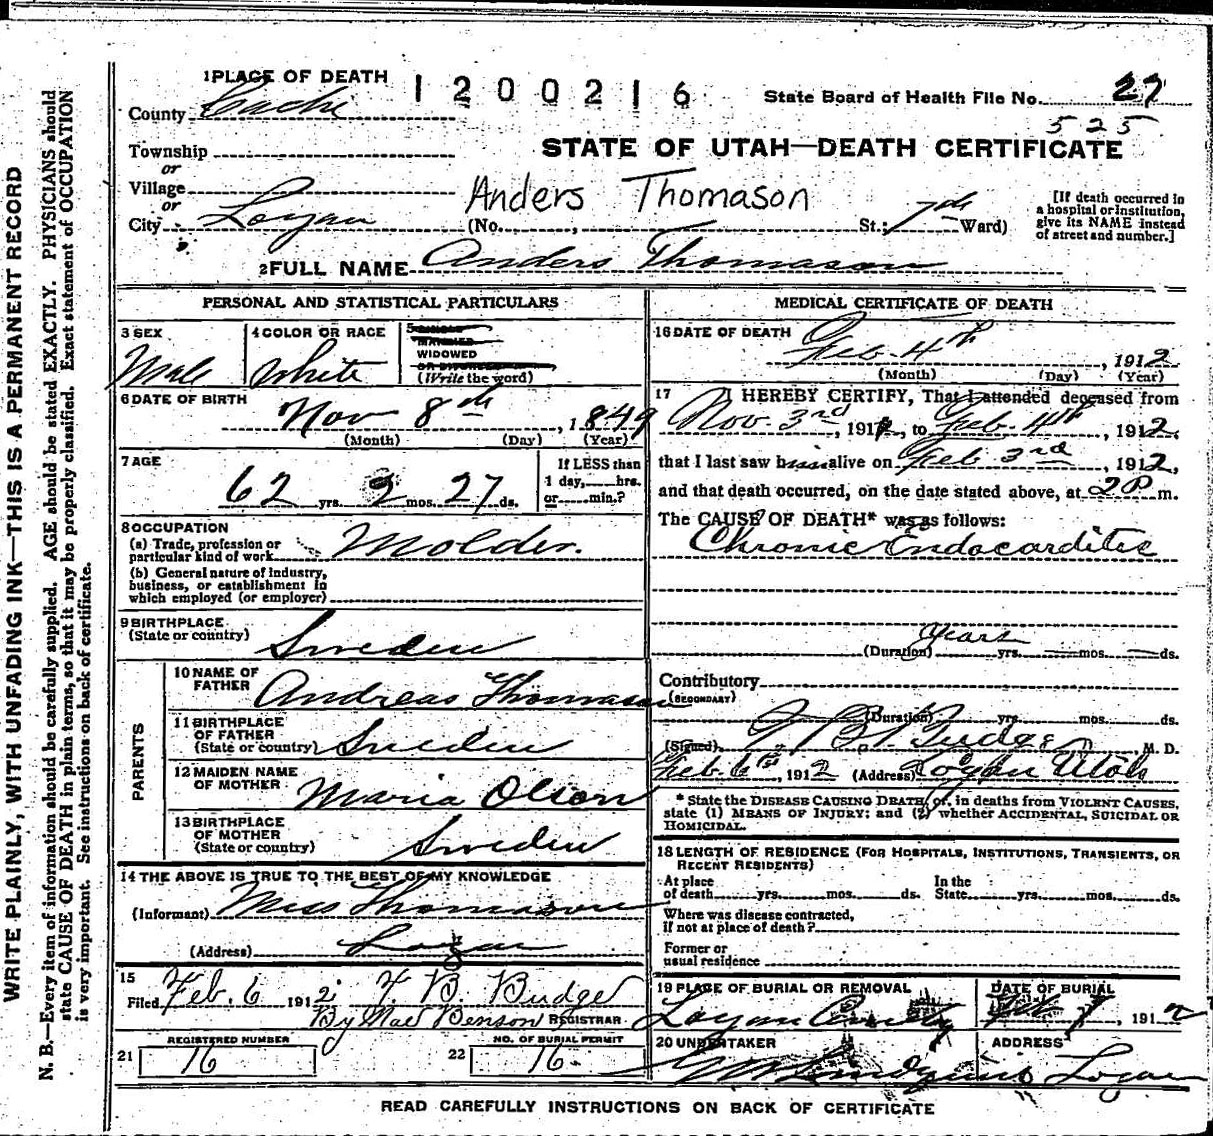 1 PLACE OF DEATH
1200216
State Board of Health File No. 27
525
County Cache
STATE OF UTAH—DEATH CERTIFICATE
Township
or
Village
or
City Logan
Anders Thomason
(No. , St.; 7th Ward)
[If death occurred in
a hospital or institution,
give its NAME instead
of street and number.]
2 FULL NAME Anders Thomason
PERSONAL AND STATISTICAL PARTICULARS
3 SEX
Male
4 COLOR OR RACE
White
5 SINGLE
MARRIED
WIDOWED
OR DIVORCED
(Write the word)
6 DATE OF BIRTH
Nov 8th, 1849
(Month) (Day) (Year)
7 AGE
62 yrs. 2 mos. 27 ds.
If LESS than
1 day, hrs.
or min.?
8 OCCUPATION
(a) Trade, profession or
particular kind of work Molder.
(b) General nature of industry,
business, or establishment in
which employed (or employer)
9 BIRTHPLACE
(State or country) Sweden
PARENTS
10 NAME OF
FATHER Andreas Thomason
11 BIRTHPLACE
OF FATHER
(State or country) Sweden
12 MAIDEN NAME
OF MOTHER Maria Olson
13 BIRTHPLACE
OF MOTHER
(State or country) Sweden
14 THE ABOVE IS TRUE TO THE BEST OF MY KNOWLEDGE
(Informant) Miss Thomason
(Address) Logan
15
Filed Feb. 6 1912. F. B. Budge
By Mae Benson REGISTRAR
REGISTERED NUMBER
21 16
NO. OF BURIAL PERMIT
22 16
MEDICAL CERTIFICATE OF DEATH
16 DATE OF DEATH
Feb. 4th, 1912
(Month) (Day) (Year)
17 I HEREBY CERTIFY, That I attended deceased from
Nov. 3rd, 1911, to Feb. 4th, 1912,
that I last saw him alive on Feb 3rd, 1912,
and that death occurred, on the date stated above, at 2 P m.
The CAUSE OF DEATH* was as follows:
Chronic Endocarditis
years
(Duration) yrs. mos. ds.
Contributory
(SECONDARY)
(Duration) yrs. mos. ds.
(Signed) F. B. Budge, M. D.
Feb. 6th, 1912 (Address) Logan Utah
* State the DISEASE CAUSING DEATH, or, in deaths from VIOLENT CAUSES,
state (1) MEANS OF INJURY; and (2) whether ACCIDENTAL, SUICIDAL OR
HOMICIDAL.
18 LENGTH OF RESIDENCE (FOR HOSPITALS, INSTITUTIONS, TRANSIENTS, OR
RECENT RESIDENTS)
At place
of death yrs. mos. ds.
In the
State yrs. mos. ds.
Where was disease contracted,
If not at place of death?
Former or
usual residence
19 PLACE OF BURIAL OR REMOVAL
Logan
DATE OF BURIAL
Feb 7, 1912
20 UNDERTAKER
ADDRESS
Logan
READ CAREFULLY INSTRUCTIONS ON BACK OF CERTIFICATE
WRITE PLAINLY, WITH UNFADING INK—THIS IS A PERMANENT RECORD
N. B.—Every item of information should be carefully supplied. AGE should be stated EXACTLY. PHYSICIANS should
state CAUSE OF DEATH in plain terms, so that it may be properly classified. Exact statement of OCCUPATION
is very important. See instructions on back of certificate.